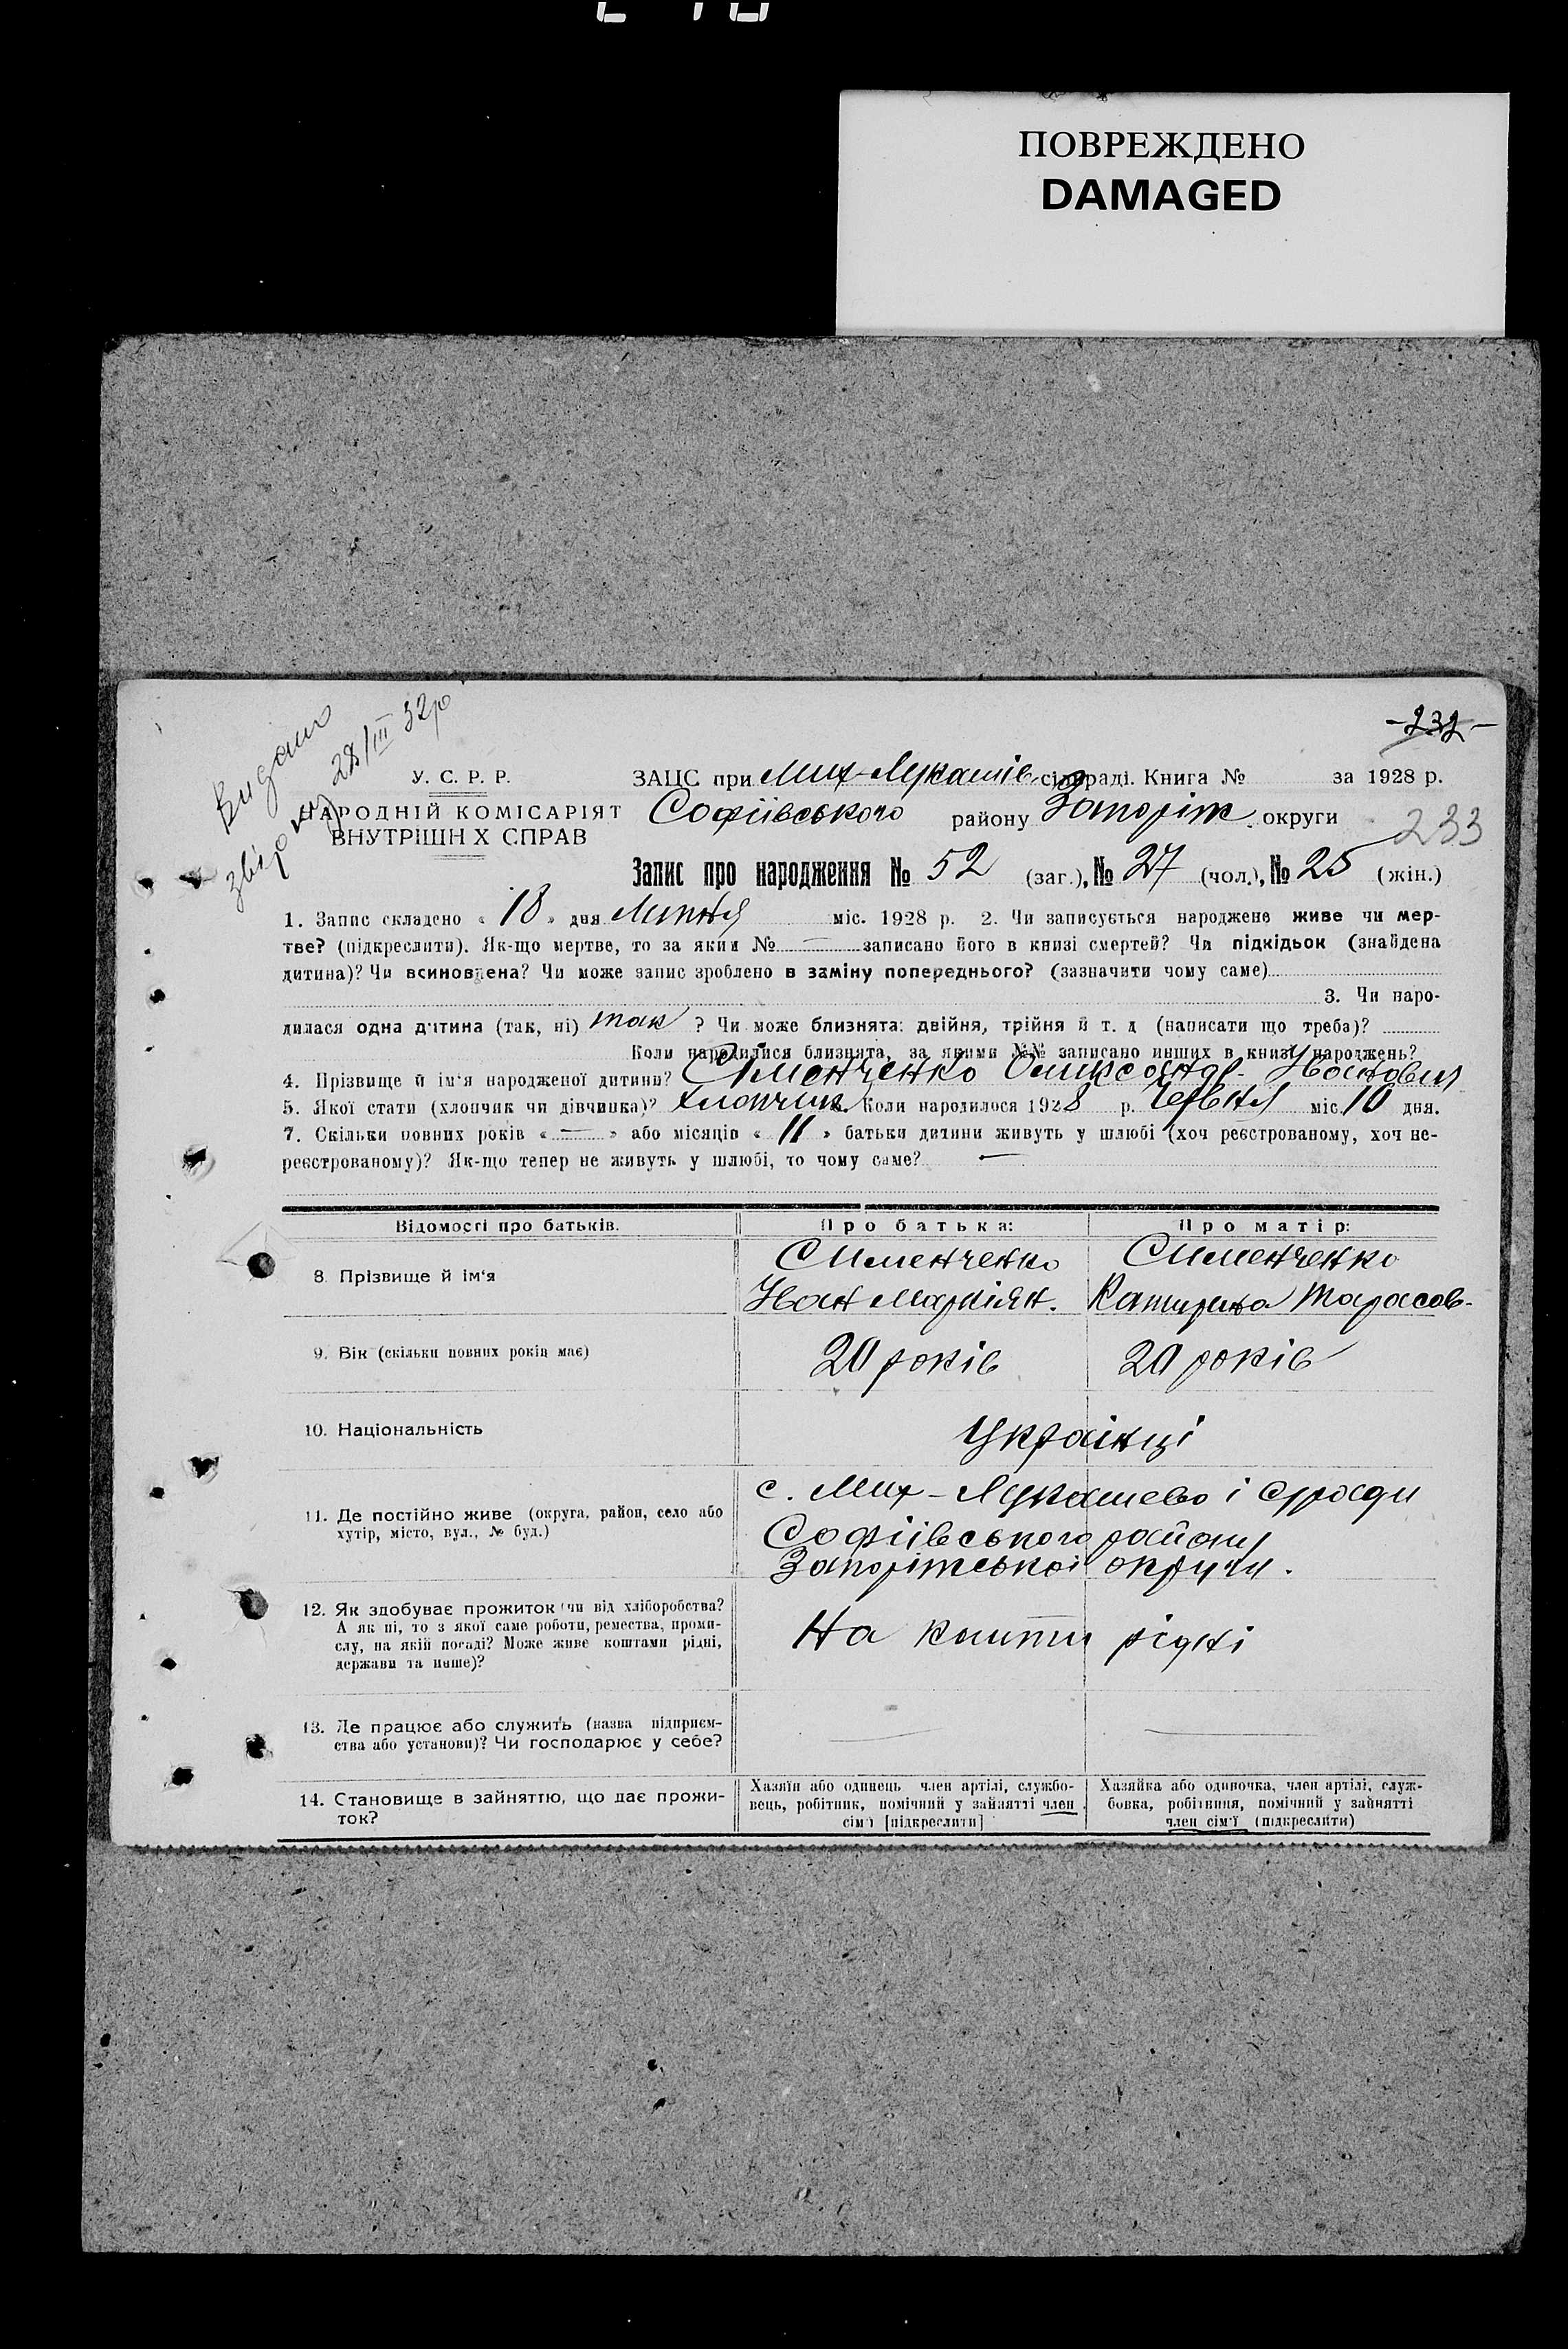 ПОВРЕЖДЕНО
DAMAGED
-232-
233
Видано
28/III 32р
У. С. Р. Р.
НАРОДНІЙ КОМІСАРІЯТ
ВНУТРІШН Х СПРАВ
ЗАЦС при Мих-Лукашів. сільраді. Книга № за 1928 р.
Софіївського району Запоріж. округи
Запис про народження № 52 (заг.), № 27 (чол.), № 25 (жін.)
1. Запис складено „ 18 „ дня Липня міс. 1928 р. 2. Чи записується народжене живе чи мер-
тве? (підкреслити). Як-що мертве, то за яким № — записано його в книзі смертей? Чи підкідьок (знайдена
дитина)? Чи всиновлена? Чи може запис зроблено в заміну попереднього? (зазначити чому саме)
3. Чи наро-
дилася одна дитина (так, ні) так ? Чи може близнята: двійня, трійня й т. д (написати що треба)?
Коли народилися близнята, за якими №№ записано инших в книзі народжень?
4. Прізвище й ім'я народженої дитини? Сименченко Олександр Иванович
5. Якої стати (хлопчик чи дівчинка)? хлопчик 6. Коли народилося 1928 р. Червня міс. 10 дня.
7. Скільки повних років « — » або місяців « 11 » батьки дитини живуть у шлюбі (хоч реєстрованому, хоч не-
реєстрованому)? Як-що тепер не живуть у шлюбі, то чому саме? —
Відомості про батьків. Про батька: Про матір:
8. Прізвище й ім'я
Сименченко Иван Маркіян.
Сименченко Катирина Тарасов-
9. Вік (скільки повних років має) 20 років 20 років
10. Національність Українці
11. Де постійно живе (округа, район, село або
хутір, місто, вул., № буд.)
с. Мих-Лукашево і с/ради
Софіївського району
Запоріжської округи.
12. Як здобуває прожиток (чи від хліборобства?
А як ні, то з якої саме роботи, ремества, проми-
слу, на якій посаді? Може живе коштами рідні,
держави та инше)?
На кошти рідні
13. Де працює або служить (назва підприєм-
ства або установи)? Чи господарює у себе?
14. Становище в зайняттю, що дає прожи-
ток?
Хазяїн або одинець член артілі, службо-
вець, робітник, помічний у зайнятті член
сім'ї [підкреслити]
Хазяйка або одиночка, член артілі, служ-
бовка, робітниця, помічний у зайнятті
член сім'ї (підкреслити)